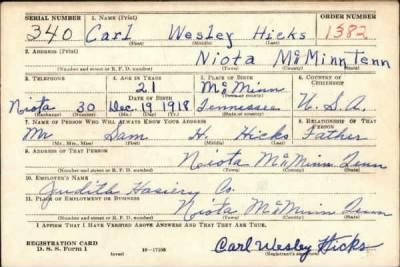 SERIAL NUMBER 1. NAME (Print) ORDER NUMBER
340 Carl Wesley Hicks 1382
(First) (Middle) (Last)
2. ADDRESS (Print)
Niota McMinn Tenn
(Number and street or R. F. D. number) (Town) (County) (State)
3. TELEPHONE 4. AGE IN YEARS 5. PLACE OF BIRTH 6. COUNTRY OF CITIZENSHIP
21 McMinn
DATE OF BIRTH (Town or county)
Niota 30 Dec. 19 1918 Tennessee U. S. A.
(Exchange) (Number) (Mo.) (Day) (Yr.) (State or country)
7. NAME OF PERSON WHO WILL ALWAYS KNOW YOUR ADDRESS 8. RELATIONSHIP OF THAT PERSON
Mr Sam H. Hicks Father
(Mr., Mrs., Miss) (First) (Middle) (Last)
9. ADDRESS OF THAT PERSON
Niota McMinn Tenn
(Number and street or R. F. D. number) (Town) (County) (State)
10. EMPLOYER'S NAME
Judith Hosiery Co.
11. PLACE OF EMPLOYMENT OR BUSINESS
Niota McMinn Tenn
(Number and street or R. F. D. number) (Town) (County) (State)
I AFFIRM THAT I HAVE VERIFIED ABOVE ANSWERS AND THAT THEY ARE TRUE.
REGISTRATION CARD
D. S. S. Form 1 (over) Carl Wesley Hicks
(Registrant's signature)